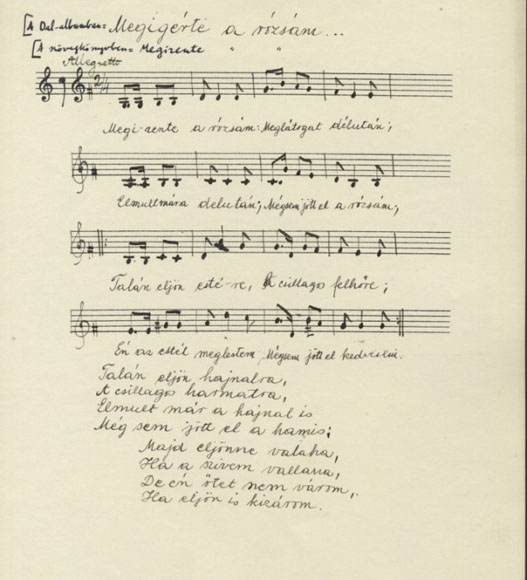 [A Dal-albumban= Megigérte a rózsám...
[A növegkönyvben= Megizente " "
Allegretto
2/4
Megi-zente a rózsám: Meglátogat délután;
Elmult mára délután; Mégsem jött el a rózsám;
Talán eljön esté-re, A csillagos felhőre;
Én az estét meglestem, Mégsem jött el kedvesem.
Talán eljön hajnalra,
A csillagos harmatra,
Elmult már a hajnal is
Még sem jött el a hamis;
Majd eljönne valaha,
Ha a szivem vallana,
De én őtet nem várom,
Ha eljön is kizárom.